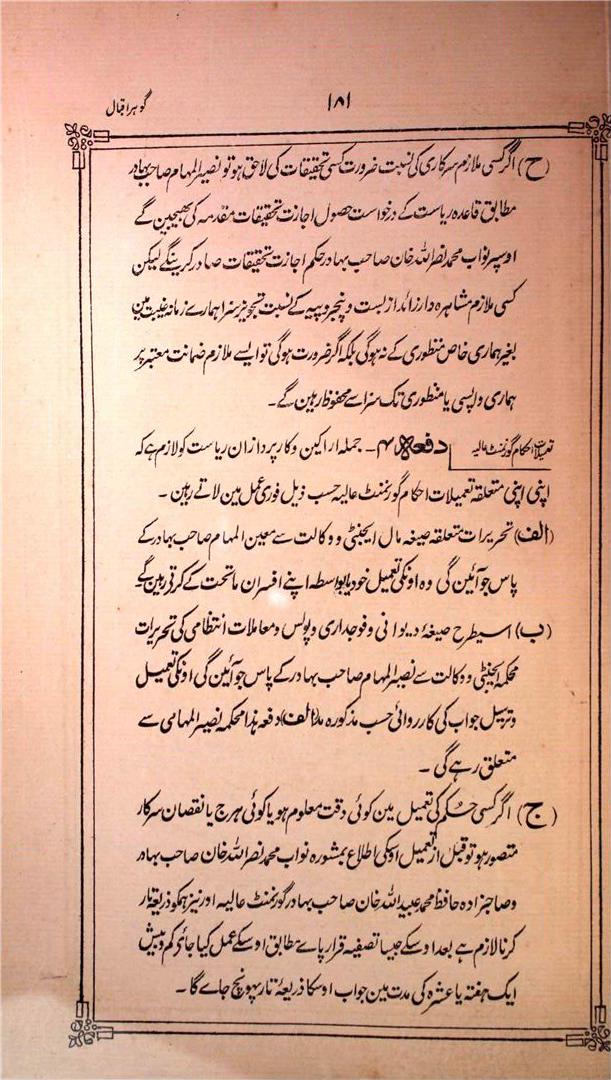 ۱۸۱
گوہر اقبال
(ح) اگر کسی ملازم سرکاری کی نسبت ضرورت کسی تحقیقات کی لاحق ہو تو نصیر المہام صاحب بہادر
مطابق قاعدہ ریاست کے درخواست حصول اجازت تحقیقات مقدمہ کی بھیجین گے
اوسپر نواب محمد نصر اللہ خان صاحب بہادر حکم اجازت تحقیقات صادر کرینگے لیکن
کسی ملازم مشاہرہ دار زائد از بست و پنجروپیہ کے نسبت تجویز سزا ہمارے زمانہ غیبت مین
بغیر ہماری خاص منظوری کے نہ ہوگی بلکہ اگر ضرورت ہوگی تو ایسے ملازم ضمانت معتبر پر
ہماری واپسی یا منظوری تک سزا سے محفوظ رہین گے۔
تعمیلات احکام گورنمنٹ عالیہ
دفعہ ۴۔ جملہ اراکین و کارپردازان ریاست کو لازم ہے کہ
اپنی اپنی متعلقہ تعمیلات احکام گورنمنٹ عالیہ حسب ذیل فوری عمل مین لاتے رہین ۔
(الف) تحریرات متعلقہ صیغہ مال ایجنٹی و وکالت سے معین المہام صاحب بہادر کے
پاس جو آئین گی وہ اونکی تعمیل خود یا بواسطہ اپنے افسران ماتحت کے کرتی رہین گے
(ب) اسیطرح صیغۂ دیوانی و فوجداری و پولس و معاملات انتظامی کی تحریرات
محکمہ ایجنٹی و وکالت سے نصیر المہام صاحب بہادر کے پاس جو آئین گی اونکی تعمیل
و ترسیل جواب کی کارروائی حسب مذکورہ مد (الف) دفعہ ہذا محکمہ نصیر المہامی سے
متعلق رہے گی ۔
(ج) اگر کسی حکم کی تعمیل مین کوئی دقت معلوم ہو یا کوئی ہرج یا نقصان سرکار
متصور ہو تو قبل از تعمیل اوسکی اطلاع بمشورہ نواب محمد نصر اللہ خان صاحب بہادر
وصاحبزادہ حافظ محمد عبید اللہ خان صاحب بہادر گورنمنٹ عالیہ اور نیز ہمکو ذریعۂ تار
کرنا لازم ہے بعد اوسکے جیسا تصفیہ قرار پاے مطابق اوسکے عمل کیا جاے کم و بیش
ایک ہفتہ یا عشرہ کی مدت مین جواب اوسکا ذریعۂ تار پہونچ جاے گا ۔